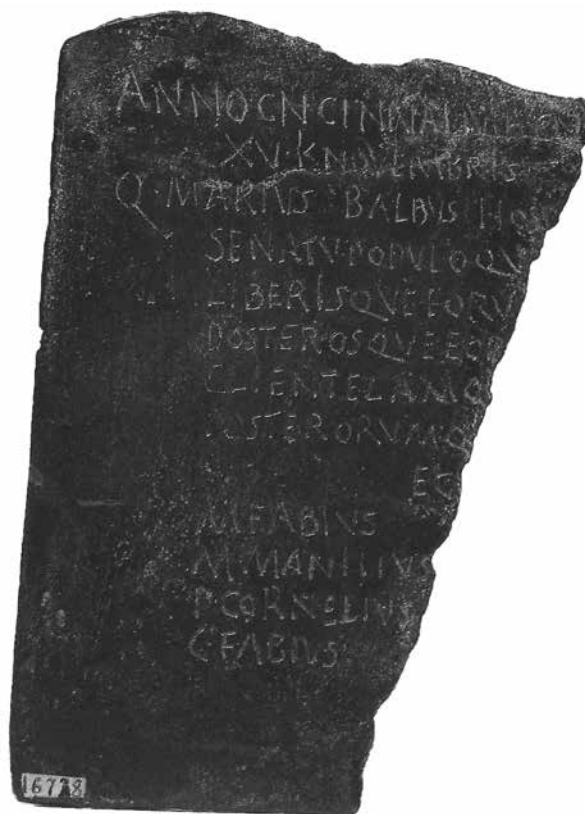 ANNO CN CINNAI
XV · K NOVEMBRIS
Q · MARIVS BALBVS HOS
SENATV POPVLOQV
LIBERISQVE EORV
POSTEROSQVE EOR
CLIENTELAMQ
POSTERORVMQ
EG
M FABIVS
M MANILIVS
P CORNELIVS
C FABIVS
16728